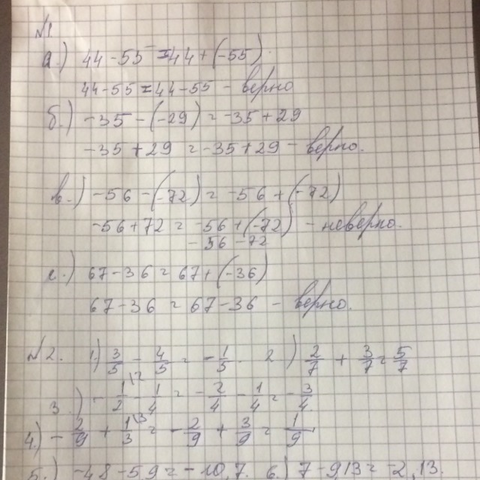 №1
а.) 44-55 = 44 + (-55)
44-55 = 44-55 - верно
б.) -35-(-29) = -35+29
-35+29 = -35+29 - верно.
в.) -56-(-72) = -56+(-72)
-56+72 = -56+(-72) - неверно.
-56-72
г.) 67-36 = 67+(-36)
67-36 = 67-36 - верно.
№2. 1) 3/5 - 4/5 = -1/5. 2) 2/7 + 3/7 = 5/7
3.) -1/2 - 1/4 = -2/4 - 1/4 = -3/4
4) -2/9 + 1/3 = -2/9 + 3/9 = 1/9
5.) -4,8-5,9 = -10,7. 6.) 7-9,13 = -2,13.